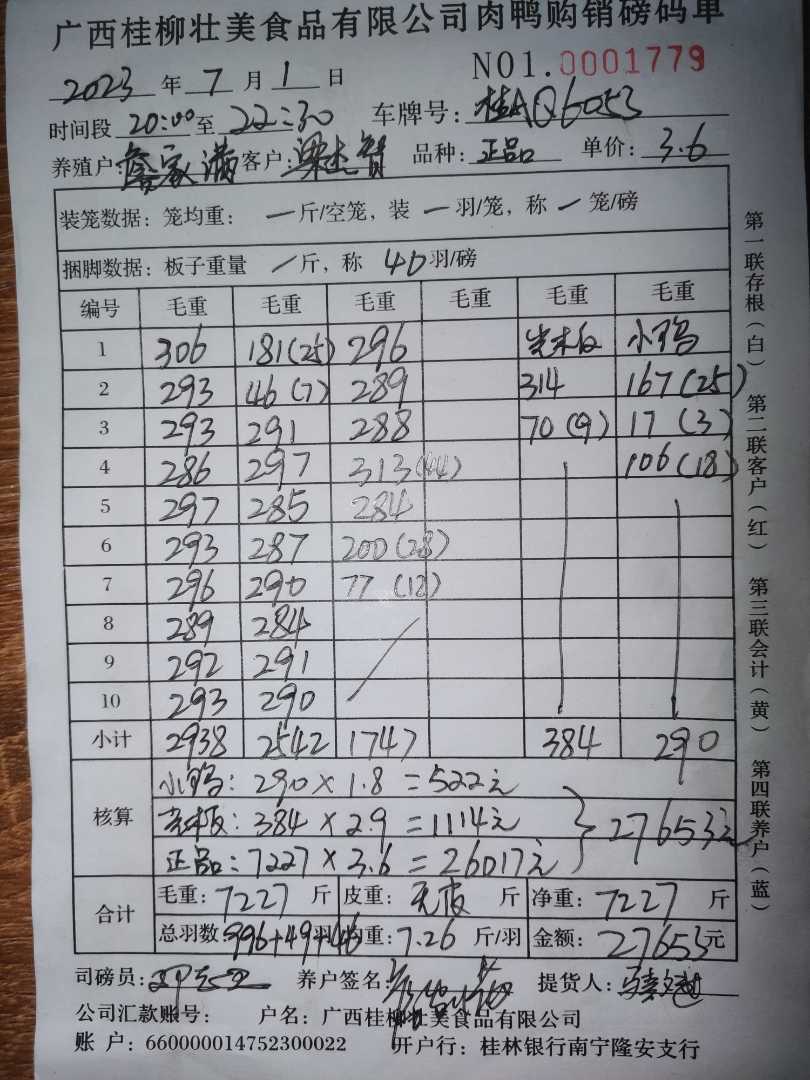 广西桂柳壮美食品有限公司肉鸭购销磅码单
2023 年 7 月 1 日 NO1.0001779
时间段 20:00 至 22:30 车牌号: 桂AQ6053
养殖户: 家满 客户: 梁 智 品种: 正品 单价: 3.6
装笼数据: 笼均重: 一斤/空笼, 装 一羽/笼, 称 一笼/磅
捆脚数据: 板子重量 /斤, 称 40羽/磅
编号 毛重 毛重 毛重 毛重 毛重 毛重
1 306 181(25) 296 小鸭
2 293 46(7) 289 314 167(25)
3 293 291 288 70(9) 17(3)
4 286 297 313(44) 106(18)
5 297 285 284
6 293 287 200(28)
7 296 290 77(12)
8 289 284
9 292 291
10 293 290
小计 2938 2542 1747 384 290
核算
小鸭: 290×1.8=522元
板: 384×2.9=1114元 27653元
正品: 7227×3.6=26017元
合计
毛重: 7227 斤 皮重: 无皮 斤 净重: 7227 斤
总羽数: 996+49+46 羽 均重: 7.26 斤/羽 金额: 27653元
司磅员: 养户签名: 提货人:
公司汇款账号: 户名: 广西桂柳壮美食品有限公司
账 户: 660000014752300022 开户行: 桂林银行南宁隆安支行
第一联存根(白) 第二联客户(红) 第三联会计(黄) 第四联养户(蓝)